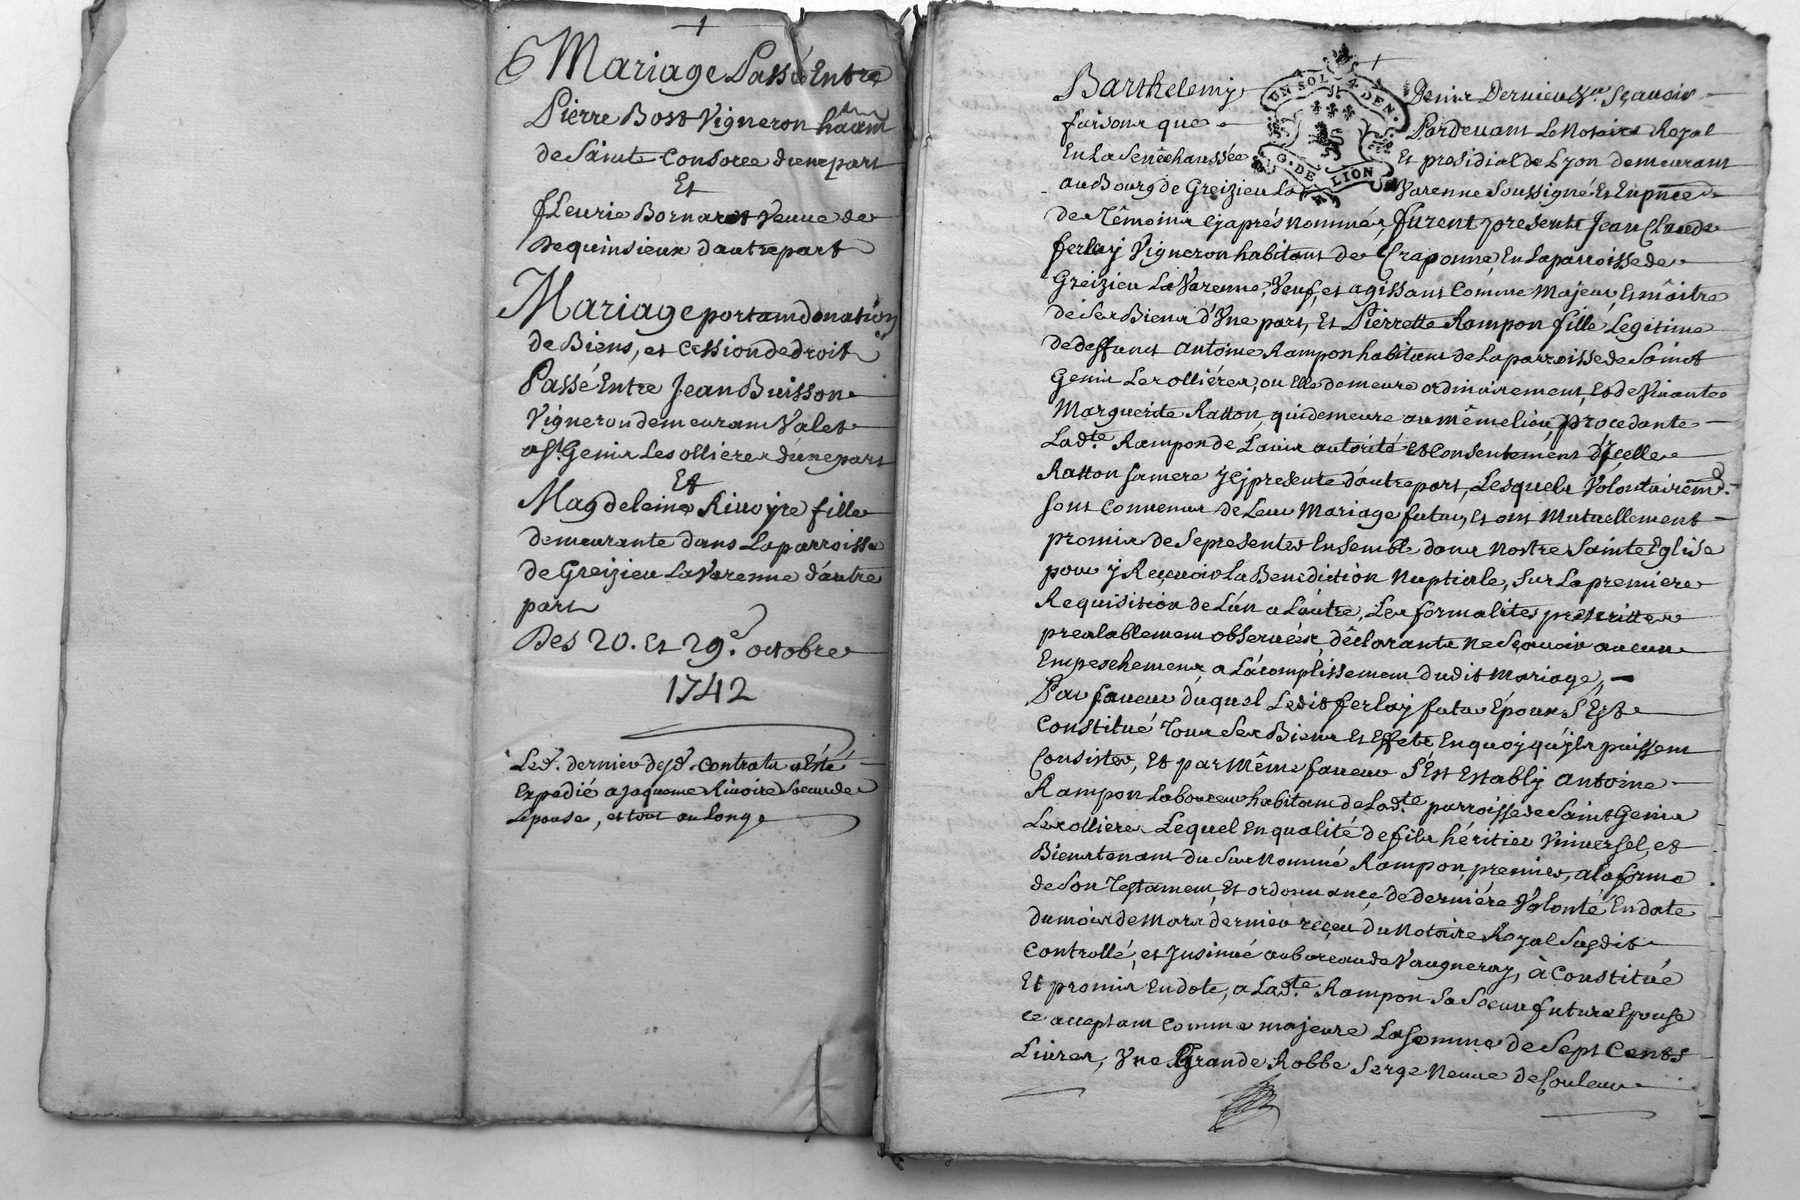 Mariage Passé Entre
Pierre Bost Vigneron hãant
de Sainte Consorce d'une part
Et
fleurie Bornaret Veuve de
De quinsieux d'autre part
Mariage portant donation
de Biens, et Cession de droits
Passé Entre Jean Buisson
Vigneron demeurant Valet
a St. Genis les ollieres d'une part
Et
Magdeleine Rivoyre fille
demeurante dans La parroisse
de Greizieu La Varenne d'autre
part
Des 20. Et 29e. octobre
1742
Led. dernier desd. Contrats a Esté
Expedié a Jaqueme Rivoire Soeur de
L'epouse, et tout au long
Barthelemy Denis Dernieu Nre. Sçavoir
UN SOL 4 DEN.
G. DE LION
faisons que Pardevant Le Notaire Royal
En La Senêchaussée Et presidial de Lyon demeurant
au Bourg de Greizieu La Varenne Soussigné Et En pnce
de Têmoins cy après nommés, furent presents Jean Claude
ferlay Vigneron habitant de Craponne En La parroisse de
Greizieu La Varenne, Veuf, et agissant Comme Majeur, Et mâitre
de Ses Biens d'Vne part, Et Pierrette Rampon fille Legitime
de deffunct Antoine Rampon habitant de La parroisse de Sainct
Genis Les ollières, ou Elle demeure ordinairement, Et de Vivante
Marguerite Ratton, qui demeure au même lieu, procedante
Ladte. Rampon de L'avis autorité et Consentement d'ycelle
Ratton sa mere ycy presente d'autre part, Lesquels Volontairemt.
sont Convenus de Leur Mariage futur, Et ont Mutuellement
promis de Se presenter Ensemble dans Nostre Sainte Eglise
pour y Reçevoir La Benediction Nuptiale, Sur La premiere
Requisition de L'un a L'autre, Les formalités prescrittes
prealablement observées, déclarants Ne Sçavoir aucun
Empeschement a L'acomplissement dudit Mariage,
Par faveur duquel Ledit ferlay futur Époux S'Est
Constitué Tous Ses Biens Et Effets En quoy qu'ils puissent
Consister, Et par Même faveur S'Est Estably Antoine
Rampon Laboureur habitant de Ladte. parroisse de Saint Genis
Les ollieres Lequel En qualité de fils héritier Vniversel, et
Bienstenant du Sus Nommé Rampon premier, a la forme
de Son Testament, Et ordonnance de dernière Volonté, En date
du mois de Mars dernier reçeu du Notaire Royal Susdit
Controllé, et Jnsinué au bureau de Vaugneray, à Constitué
Et promis En dote, a Ladte. Rampon Sa Soeur future Epouse
ce acceptant Comme majeure La Somme de Sept Cents
Livres, Vne Grande Robbe Serge Neuve de Couleur